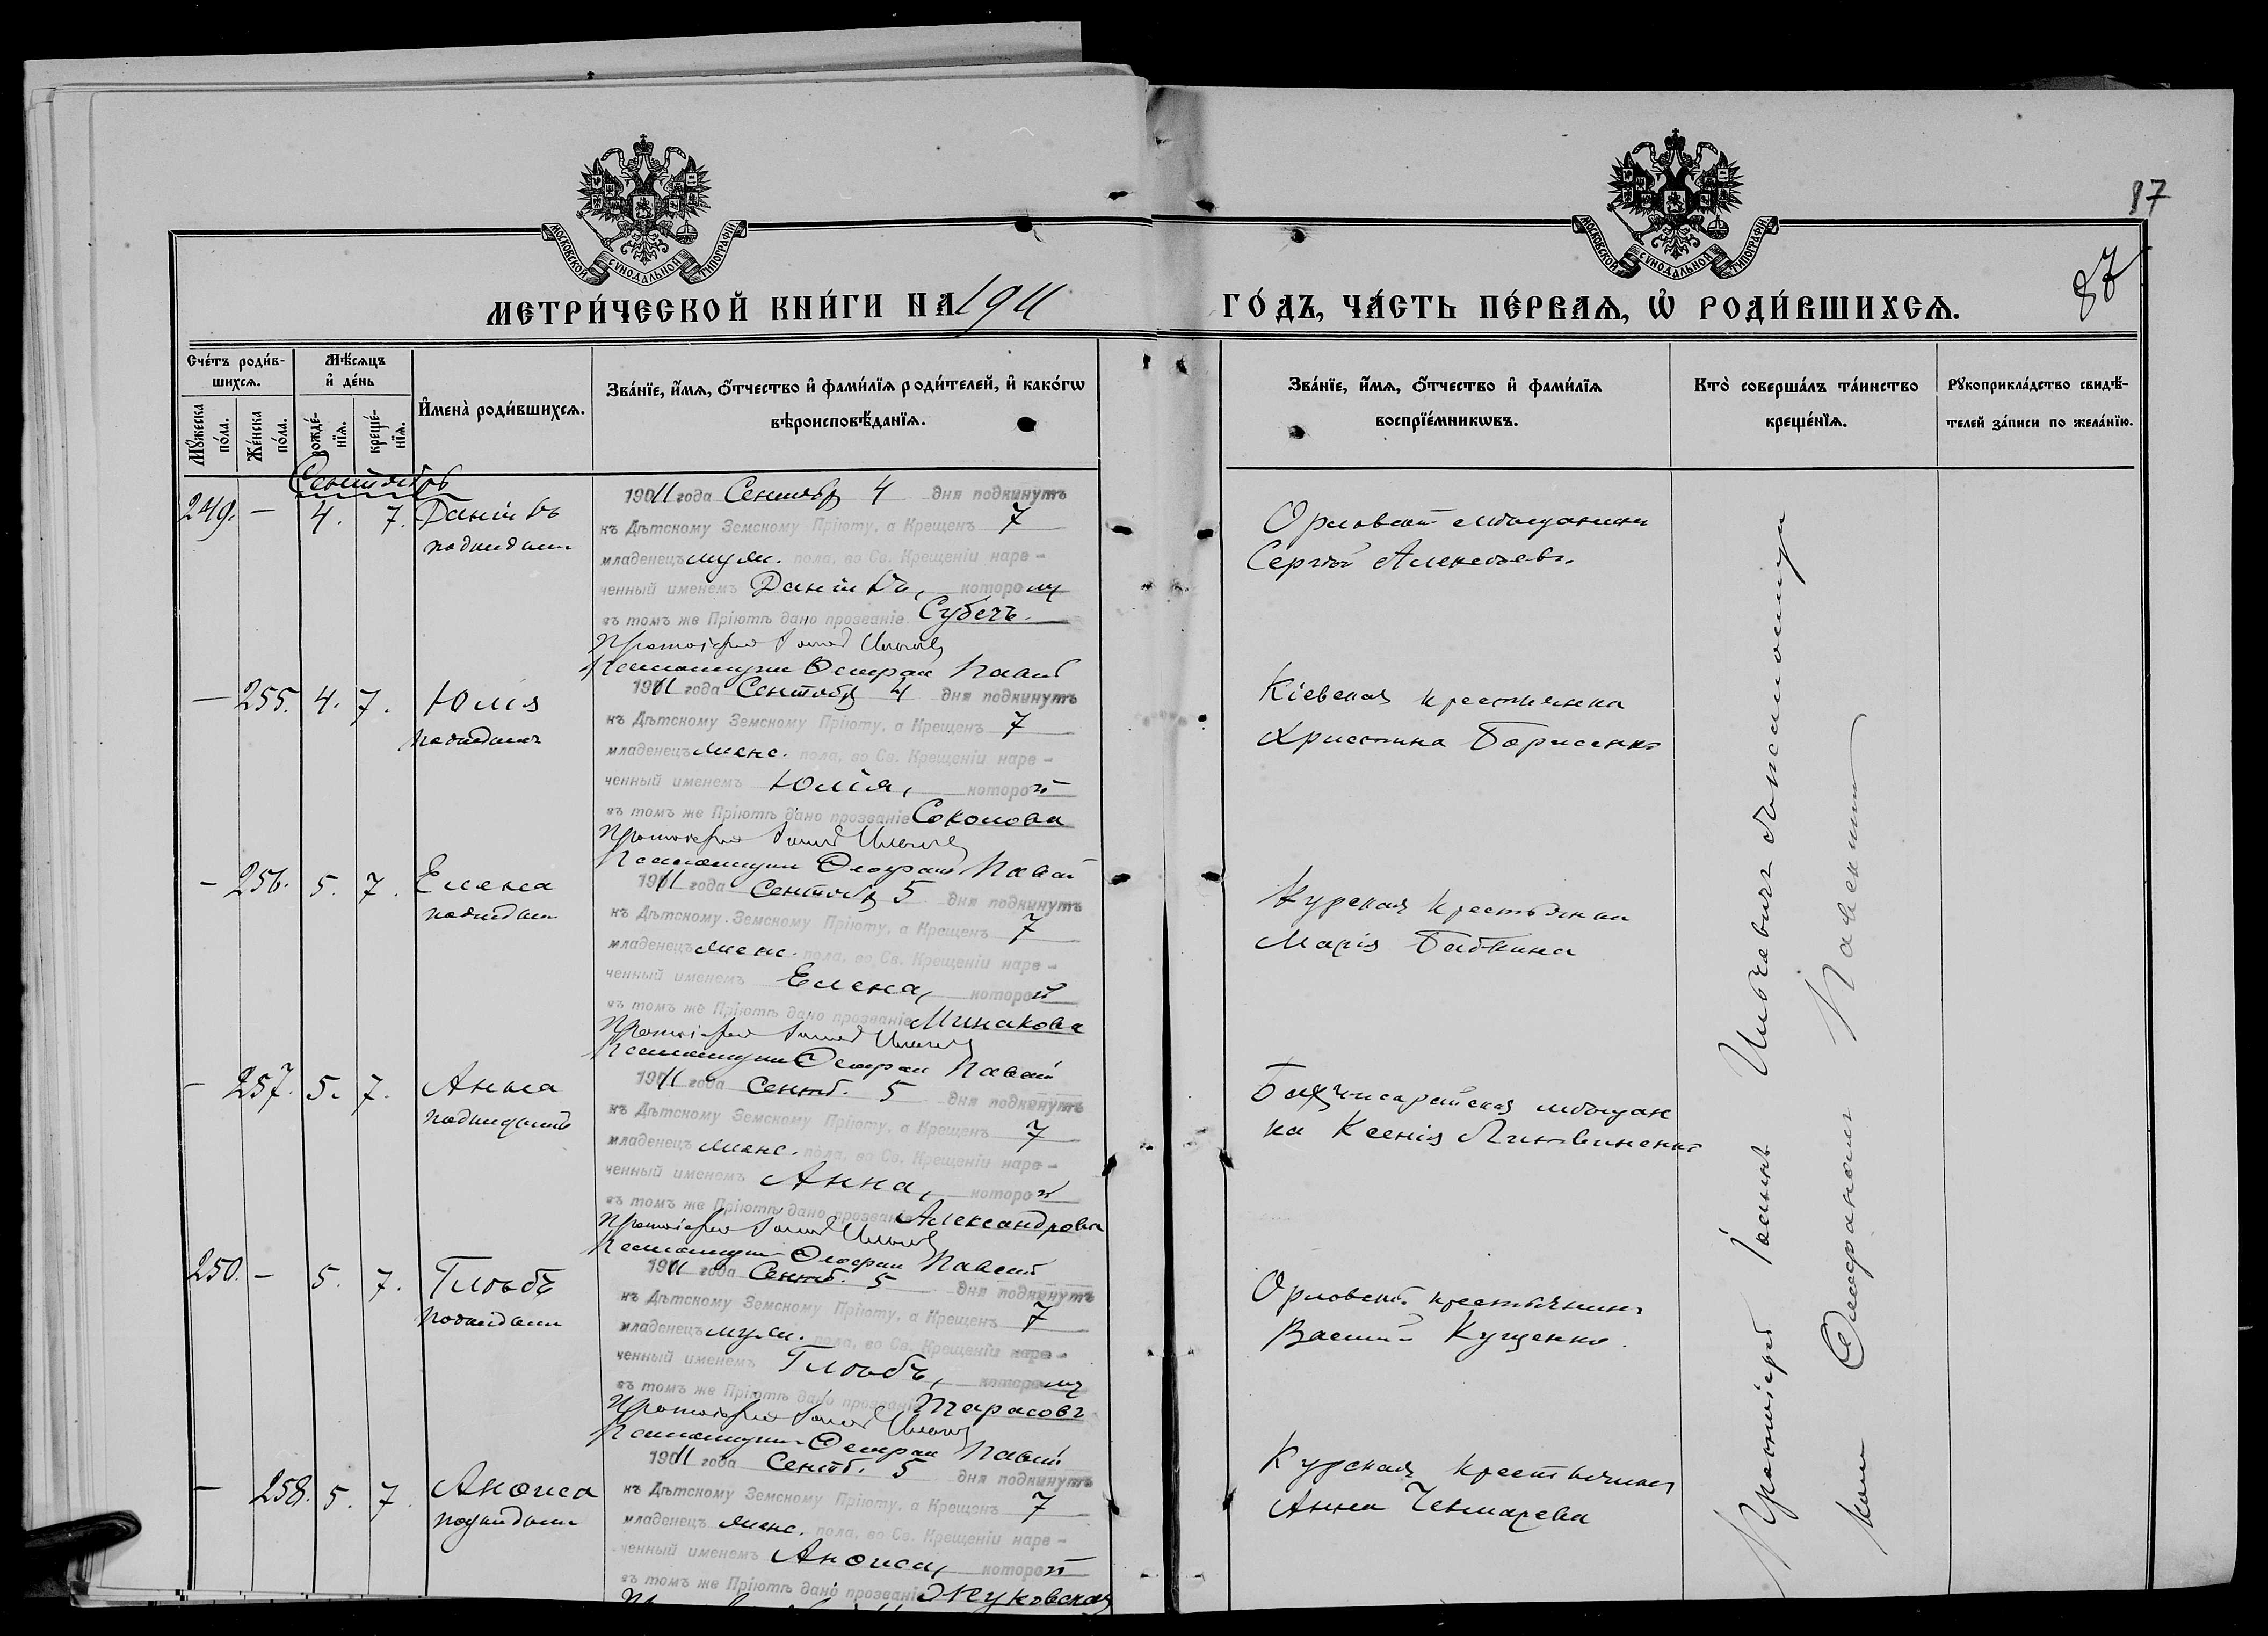 87
87
МОСКОВСКОЙ СУНОДАЛЬНОЙ ТИПОГРАФІИ.
МОСКОВСКОЙ СУНОДАЛЬНОЙ ТИПОГРАФІИ.
МЕТРИ́ЧЕСКОЙ КНИ́ГИ НА 1911
ГО́ДЪ, ЧА́СТЬ ПЕ́РВАѦ, Ѡ҆ РОДИ́ВШИХСѦ.
Сче́тъ роди́в-
шихсѧ.
Мꙋ́жеска
по́ла.
Же́нска
по́ла.
Мѣ́сѧцъ
и҆ де́нь
рожде́-
нїѧ.
креще́-
нїѧ.
И҆мена̀ роди́вшихсѧ.
Зва́нїе, и҆́мѧ, ѻ҆́тчество и҆ фами́лїѧ роди́телей, и҆ како́гѡ
вѣроисповѣ́данїѧ.
Зва́нїе, и҆́мѧ, ѻ҆́тчество и҆ фами́лїѧ
воспрїе́мникѡвъ.
Кто̀ соверша́лъ та́инство
креще́нїѧ.
Рꙋкоприкла́дство свидѣ́-
телей за́писи по жела́нїю.
Сентябрь
249. — 4. 7. Даніилъ
подкидыш
1911 года Сентябр 4 дня подкинутъ
къ Дѣтскому Земскому Пріюту, а Крещенъ 7
младенецъ муж. пола, во Св. Крещеніи наре-
ченный именемъ Даніилъ, которому
въ томъ же Пріютѣ дано прозваніе Субечъ.
Орловскій мѣщанинъ
Сергѣй Алексѣевъ.
— 255. 4. 7. Юлія
подкидышъ
1911 года Сентябр 4 дня подкинутъ
къ Дѣтскому Земскому Пріюту, а Крещенъ 7
младенецъ женс. пола, во Св. Крещеніи наре-
ченный именемъ Юлія, которой
въ томъ же Пріютѣ дано прозваніе Соколова
Кіевская крестьянка
Христина Борисенко
— 256. 5. 7. Елена
подкидыш
1911 года Сентябр 5 дня подкинутъ
къ Дѣтскому Земскому Пріюту, а Крещенъ 7
младенецъ женс. пола, во Св. Крещеніи наре-
ченный именемъ Елена, которой
въ томъ же Пріютѣ дано прозваніе Минакова
Курская крестьянка
Марія Бабкина
— 257. 5. 7. Анна
подкидышъ
1911 года Сентб. 5 дня подкинутъ
къ Дѣтскому Земскому Пріюту, а Крещенъ 7
младенецъ женс. пола, во Св. Крещеніи наре-
ченный именемъ Анна, которой
въ томъ же Пріютѣ дано прозваніе Александрова
Бахчисарайская мѣщан
ка Ксенія Литвиненко
250. — 5. 7. Глѣбъ
подкидыш
1911 года Сентб. 5 дня подкинутъ
къ Дѣтскому Земскому Пріюту, а Крещенъ 7
младенецъ муж. пола, во Св. Крещеніи наре-
ченный именемъ Глѣбъ, которому
въ томъ же Пріютѣ дано прозваніе Тарасовъ
Орловскій крестьянинъ
Василій Кущенко.
— 258. 5. 7. Анѳиса
подкидыш
1911 года Сентб. 5 дня подкинутъ
къ Дѣтскому Земскому Пріюту, а Крещенъ 7
младенецъ женс. пола, во Св. Крещеніи наре-
ченный именемъ Анѳиса, которой
въ томъ же Пріютѣ дано прозваніе Жуковская
Курская крестьянка
Анна Чекмарева
Протоіерей Іоаннъ